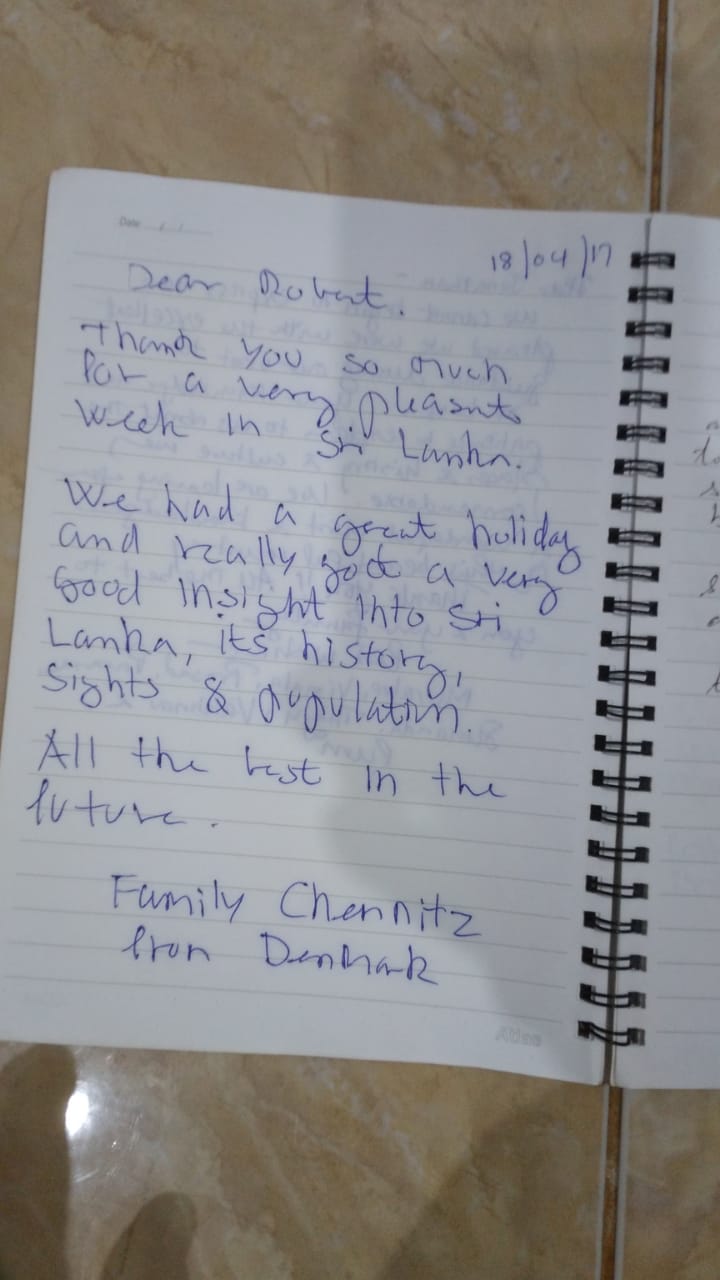 Date
18/04/17
Dear Robert.
Thank you so much
for a very pleasnt
week in Sri Lanka.
We had a great holiday
and really got a very
Good insight into Sri
Lanka, its history,
Sights & population.
All the best in the
future.
Family Chemnitz
from Denmark
Atlas